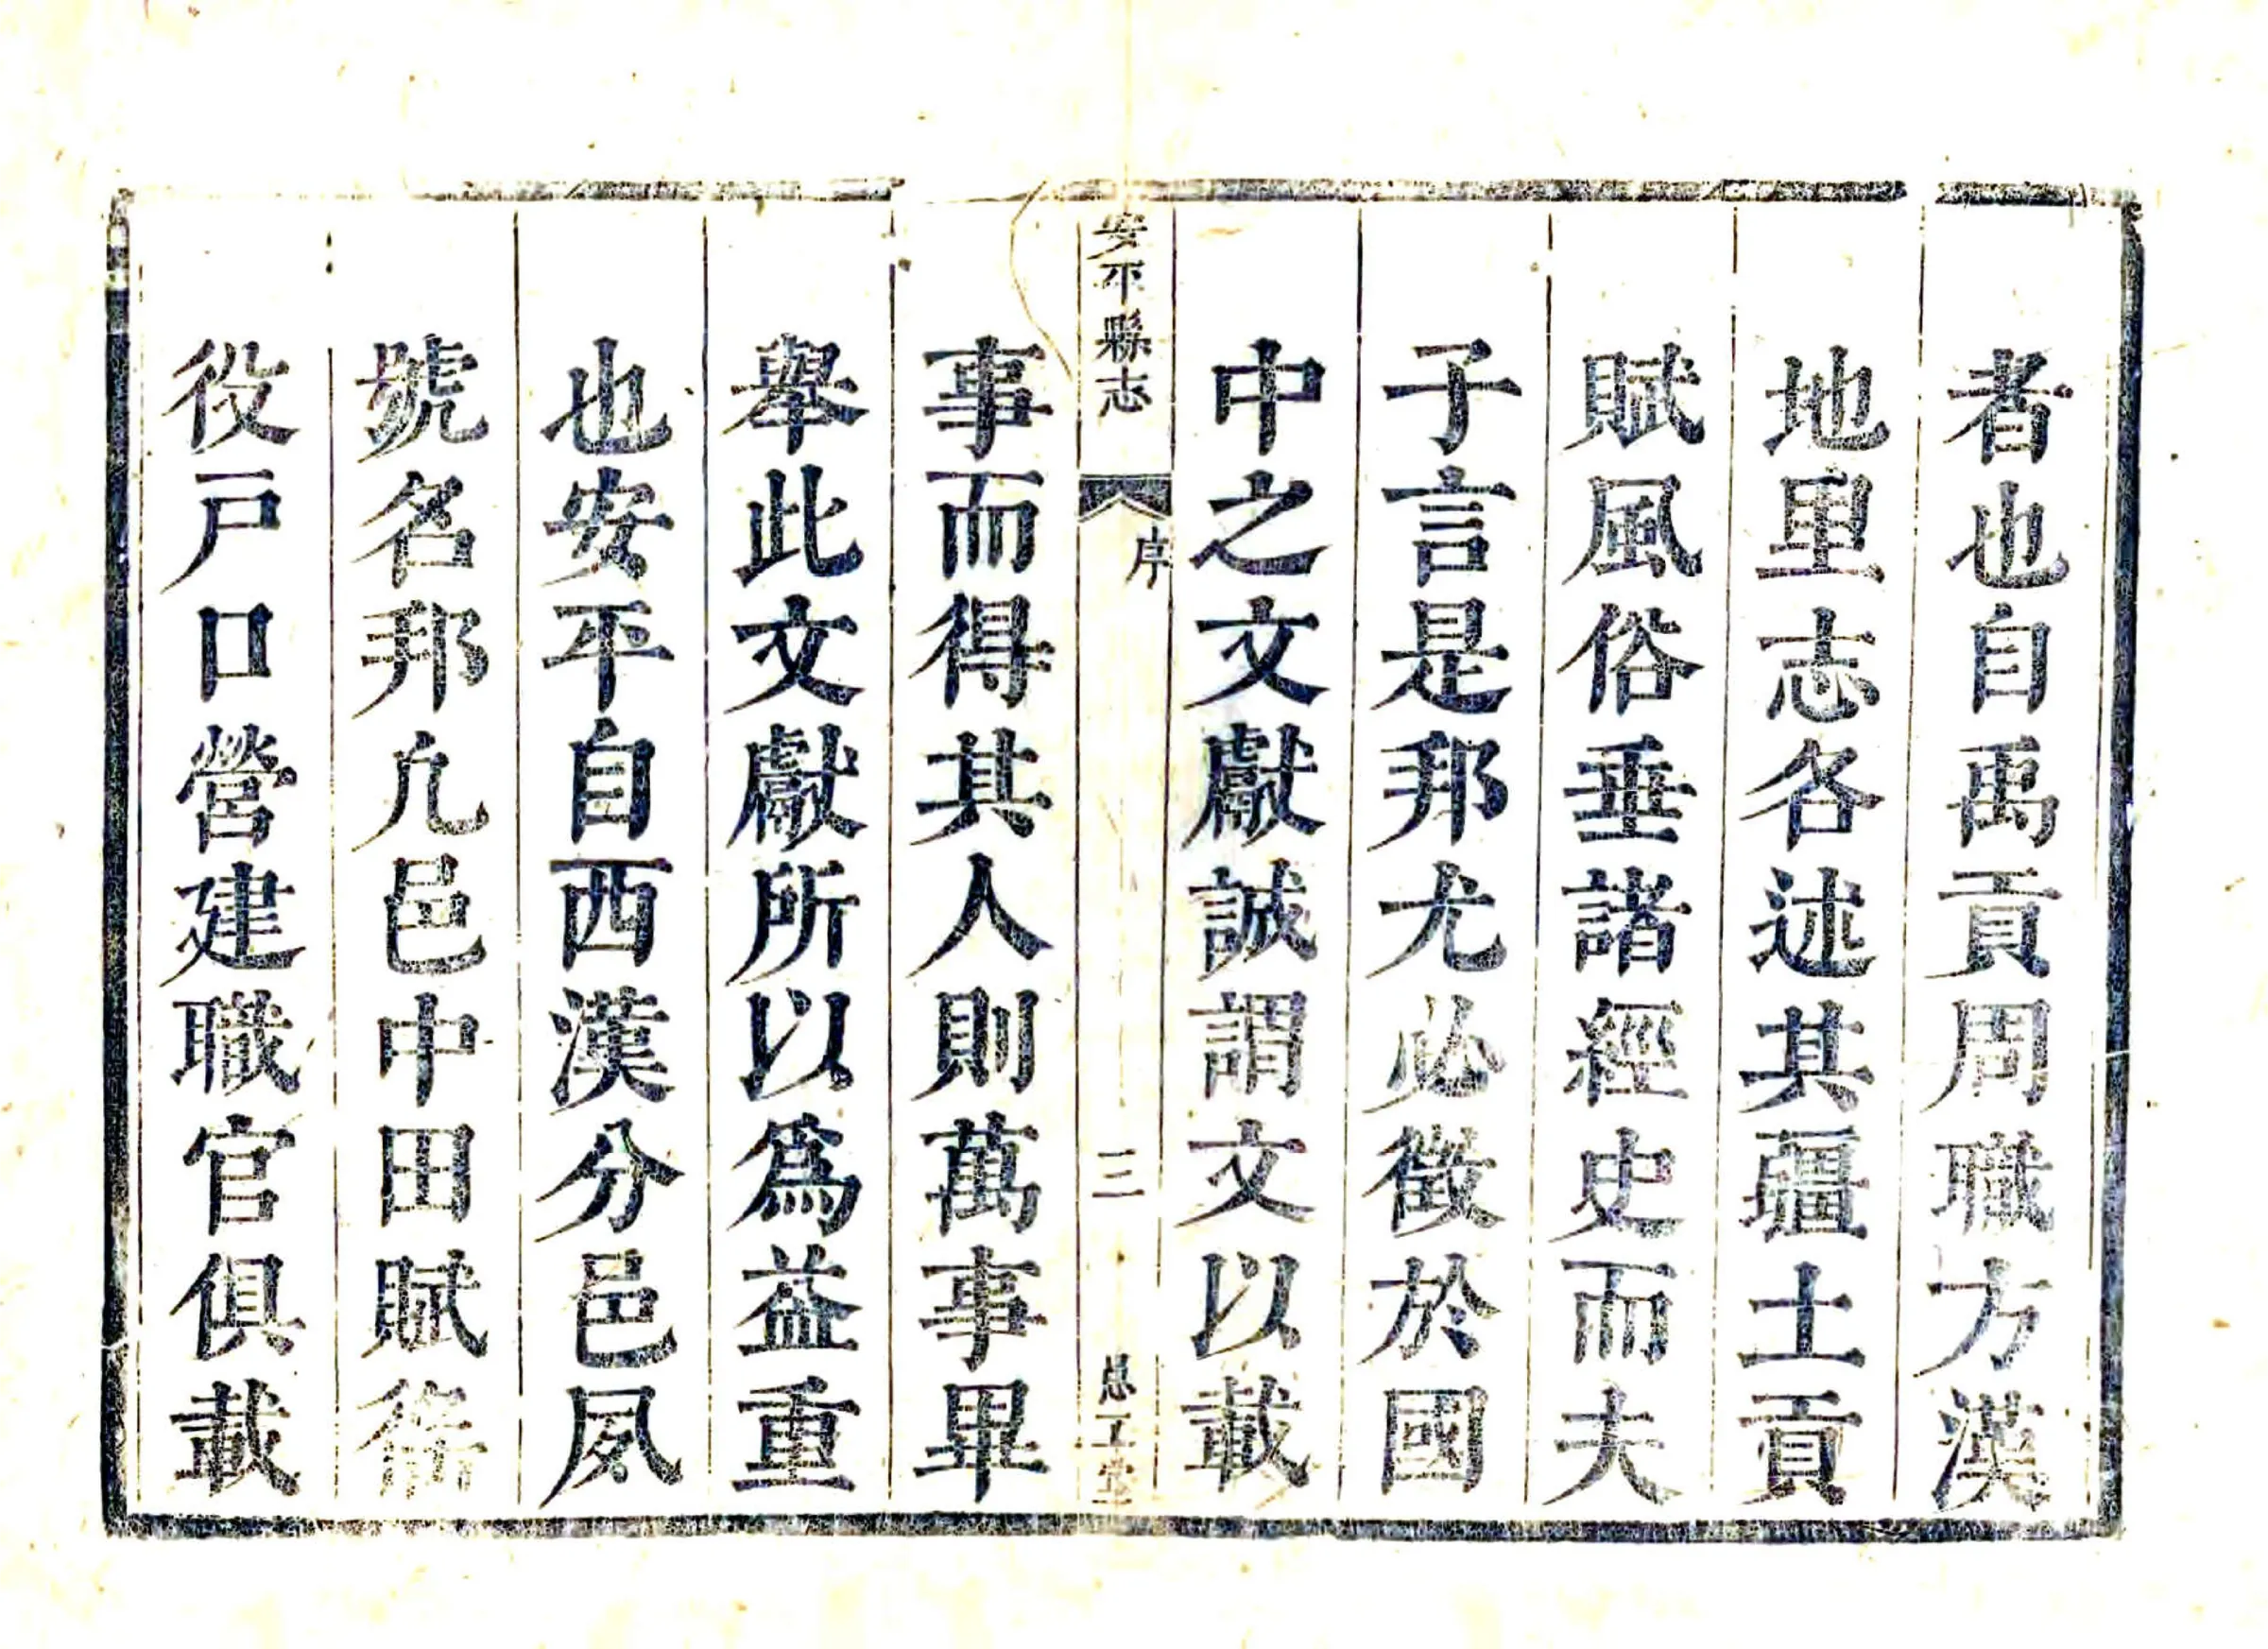 者也自禹貢周職方漢
地里志各述其疆土貢
賦風俗垂諸經史而夫
子言是邦尤必徵於國
中之文獻誠謂文以載
安平縣志 序 三 思工堂
事而得其人則萬事畢
舉此文獻所以爲益重
也安平自西漢分邑夙
號名邦凢邑中田賦徭
役戸口營建職官俱載